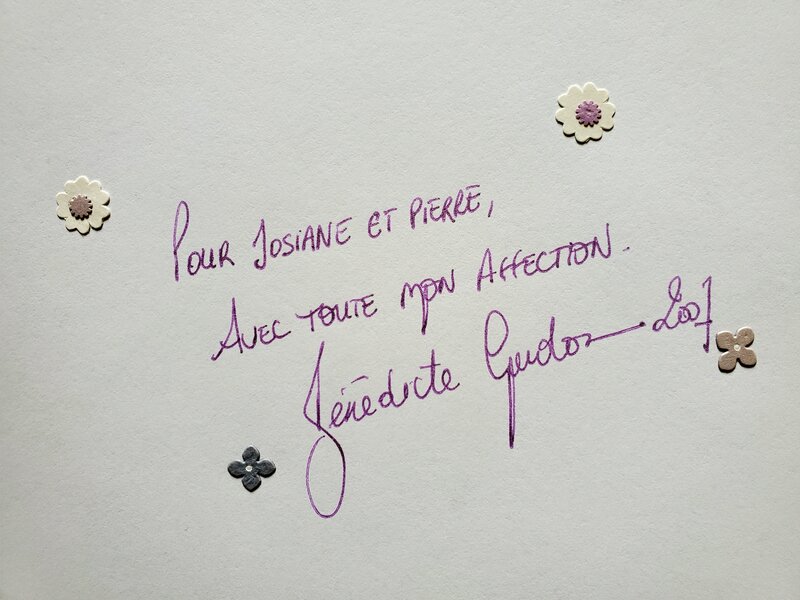 POUR JOSIANE ET PIERRE,
AVEC TOUTE MON AFFECTION.
Bénédicte 2007